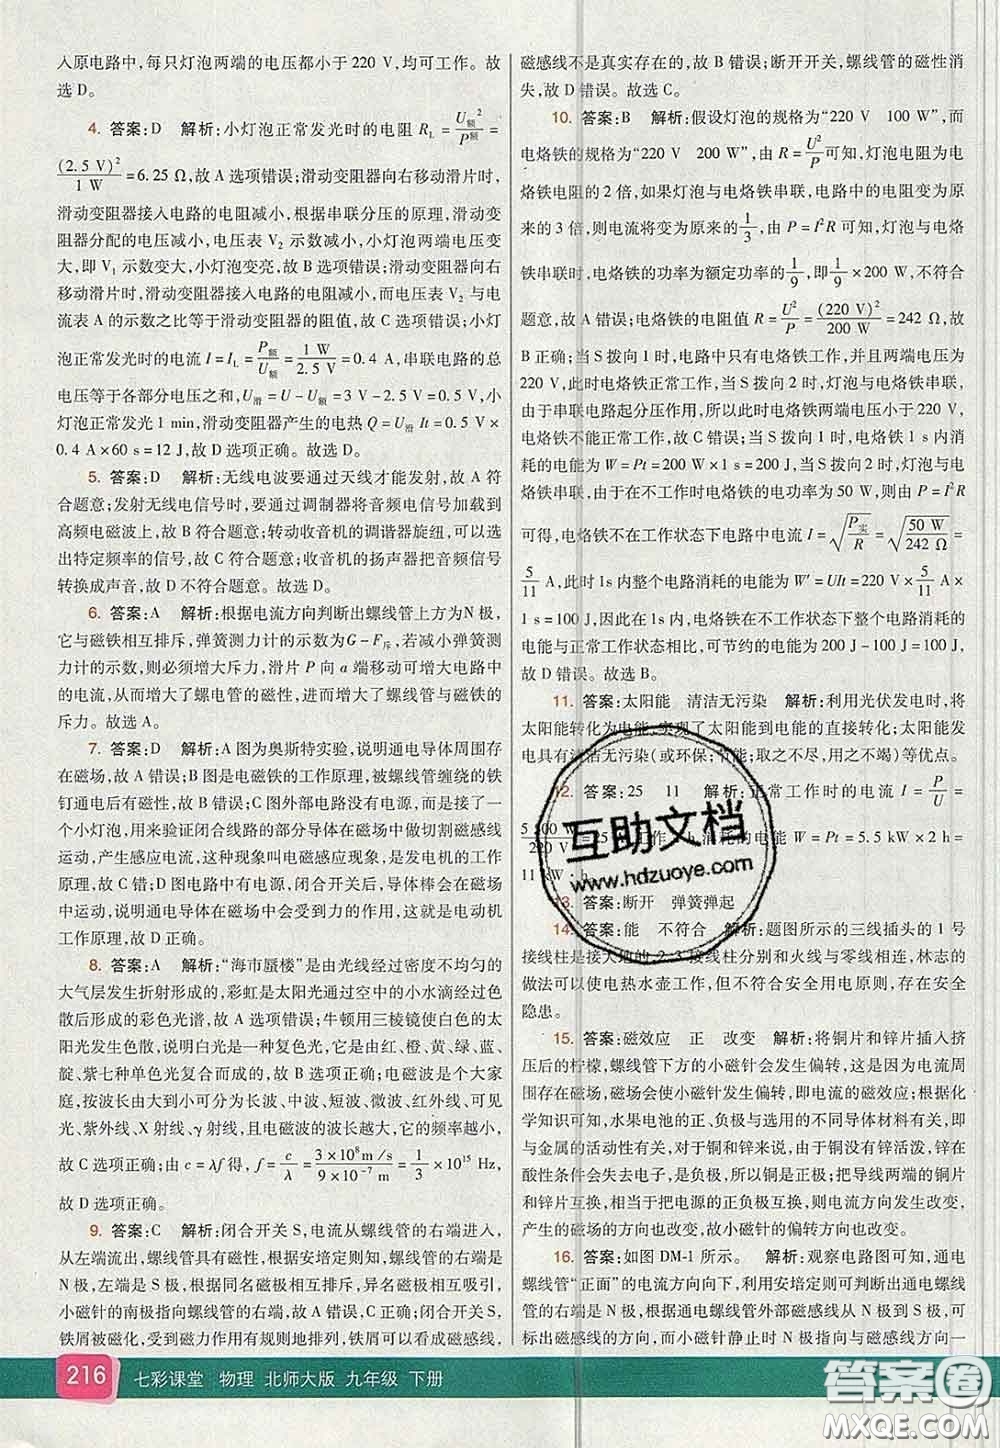 入原电路中,每只灯泡两端的电压都小于 220 V,均可工作。故
选 D。
4. 答案:D 解析:小灯泡正常发光时的电阻 R_L = U额²/P额 =
(2.5 V)²/1 W = 6.25 Ω,故 A 选项错误;滑动变阻器向右移动滑片时,
滑动变阻器接入电路的电阻减小,根据串联分压的原理,滑动变
阻器分配的电压减小,电压表 V₂ 示数减小,小灯泡两端电压变
大,即 V₁ 示数变大,小灯泡变亮,故 B 选项错误;滑动变阻器向右
移动滑片时,滑动变阻器接入电路的电阻减小,而电压表 V₂ 与电
流表 A 的示数之比等于滑动变阻器的阻值,故 C 选项错误;小灯
泡正常发光时的电流 I = I_L = P额/U额 = 1 W/2.5 V = 0.4 A,串联电路的总
电压等于各部分电压之和,U滑 = U - U额 = 3 V - 2.5 V = 0.5 V,小灯
泡正常发光 1 min,滑动变阻器产生的电热 Q = U滑 It = 0.5 V ×
0.4 A × 60 s = 12 J,故 D 选项正确。故选 D。
5. 答案:D 解析:无线电波要通过天线才能发射,故 A 符
合题意;发射无线电信号时,要通过调制器将音频电信号加载到
高频电磁波上,故 B 符合题意;转动收音机的调谐器旋纽,可以选
出特定频率的信号,故 C 符合题意;收音机的扬声器把音频信号
转换成声音,故 D 不符合题意。故选 D。
6. 答案:A 解析:根据电流方向判断出螺线管上方为N 极,
它与磁铁相互排斥,弹簧测力计的示数为G - F斥。若减小弹簧测
力计的示数,则必须增大斥力,滑片 P 向 a 端移动可增大电路中
的电流,从而增大了螺电管的磁性,进而增大了螺线管与磁铁的
斥力。故选 A。
7. 答案:D 解析:A 图为奥斯特实验,说明通电导体周围存
在磁场,故 A 错;B 图是电磁铁的工作原理,被螺线管缠绕的铁
钉通电后有磁性,故 B 错;C 图外部电路没有电源,而是一个完好
的小灯泡,用来验证闭合线路的部分导体在磁场中做切割磁感线
运动,产生感应电流,这种现象叫电磁感应现象,是发电机的工作
原理,故 C 错;D 图电路中有电源,闭合开关,导体棒会在磁场中
运动,说明通电导体在磁场中会受到力的作用,这就是电动机的
工作原理,故 D 正确。
8. 答案:A 解析:“海市蜃楼”是由光线经过密度不均匀的
大气层发生折射形成的,彩虹是太阳光通过大气中的小水滴经过色
散后形成的彩色光谱,故 A 选项错误;牛顿用三棱镜使白色的太
阳光发生色散,说明白光是一种复色光,由红、橙、黄、绿、蓝、
靛、紫七种单色光复合而成的,故 B 选项错误;电磁波是一个大
家庭,按波长由大到小可分为长波、中波、短波、微波、红外线、可
见光、紫外线、X 射线、γ 射线等,电磁波的波长越大,它的频率越小,
故 C 选项错误;由 c = λf 得,f = c/λ = (3 × 10⁸ m/s)/(9 × 10⁻⁷ m) = 1/3 × 10¹⁵ Hz,
故 D 选项正确。
9. 答案:C 解析:闭合开关 S,电流从螺线管的右端进入,
从左端流出,螺线管具有磁性,根据安培定则知,螺线管的右端是
N 极,左端是 S 极,根据同名磁极相互排斥,异名磁极相互吸引,
小磁针的南极指向螺线管的右端,故 A 错误,C 正确;闭合开关 S,
铁屑被磁化,受到磁力作用有规则地排列,铁屑可以看成磁感线,
磁感线不是真实存在的,故 B 错误;断开开关,螺线管的磁性消
失,故 D 错误。故选 C。
10. 答案:B 解析:假设灯泡的规格为“220 V 100 W”,而
电烙铁的规格为“220 V 200 W”,由 R = U²/P 可知,灯泡电阻为电
烙铁电阻的 2 倍,如果灯泡与电烙铁串联,电路中的电阻变为原
来的 3 倍,则电流将变为原来的 1/3,由 P = I²R 可知,灯泡与电烙
铁串联时,电烙铁的功率为额定功率的 1/9,即 1/9 × 200 W,不符合
题意,故 A 错误;电烙铁的电阻值 R = U²/P = (220 V)²/200 W = 242 Ω,故
B 正确;当 S 拨向 1 时,电路中只有电烙铁工作,并且两端电压为
220 V,此时电烙铁正常工作,当 S 拨向 2 时,灯泡与电烙铁串联,
由于串联电路起分压作用,所以此时电烙铁两端电压小于 220 V,
电烙铁不能正常工作,故 C 错误;当 S 拨向 1 时,正常工作 1 s,
消耗的电能为 W = Pt = 200 W × 1 s = 200 J;当 S 拨向 2 时,灯泡与电
烙铁串联,电烙铁在不工作时电烙铁的电功率为 50 W,则由 P = I²R
可得,电烙铁在不工作状态下电路中电流 I = √(P实/R) = √(50 W/242 Ω) =
5/11 A,此时 1s 内整个电路消耗的电能为 W′ = UIt = 220 V × 5/11 A ×
1 s = 100 J,因此,在 1s 内,电烙铁在不工作状态下整个电路消耗的
电能与正常工作状态相比,可节约的电能为 200 J - 100 J = 100 J,
故 D 错误。故选 B。
11. 答案:太阳能 清洁无污染 解析:利用光伏发电时,将
太阳能转化为电能,实现了太阳能到电能的直接转化;太阳能发
电具有清洁无污染(或环保;节能;取之不尽,用之不竭)等优点。
12. 答案:25 11 解析:正常工作时的电流 I = P/U =
5 500 W/220 V = 25 A 工作 2 h 消耗的电能 W = Pt = 5.5 kW × 2 h =
11 kW·h。
13. 答案:断开 弹簧弹起
14. 答案:能 不符合 解析:题图所示的三线插头的 1 号
接线柱是接大地的 2、3 接线柱分别和火线与零线相连,林志的
做法可以使电热水壶工作,但不符合安全用电原则,存在安全
隐患。
15. 答案:磁效应 正 改变 解析:将铜片和锌片插入挤
压后的柠檬,螺线管下方的小磁针会发生偏转,这是因为电流周
围存在磁场,磁场会使小磁针发生偏转,即电流的磁效应;根据化
学知识可知,水果电池的正、负极与选用的不同导体材料有关,即
与金属的活动性有关,对于铜和锌来说,由于锌比铜活泼,锌在
酸性条件会失去电子,是负极,所以铜是正极;把导线两端的铜片
和锌片互换,相当于把电源的正负极互换,则电流方向发生改变,
产生的磁场的方向也改变,故小磁针的偏转方向也改变。
16. 答案:如图 DM-1 所示。 解析:观察电路图可知,通电
螺线管“正面”的电流方向向下,利用安培定则可判断出通电螺线
管的右端是 N 极,根据通电螺线管外部磁感线从 N 极到 S 极,可
标出磁感线方向。而小磁针静止时 N 极所指的方向与磁感线方向一
互助文档
www.hdzuoye.com
216 七彩课堂 物理 北师大版 九年级 下册
答案圈
MXQE.COM